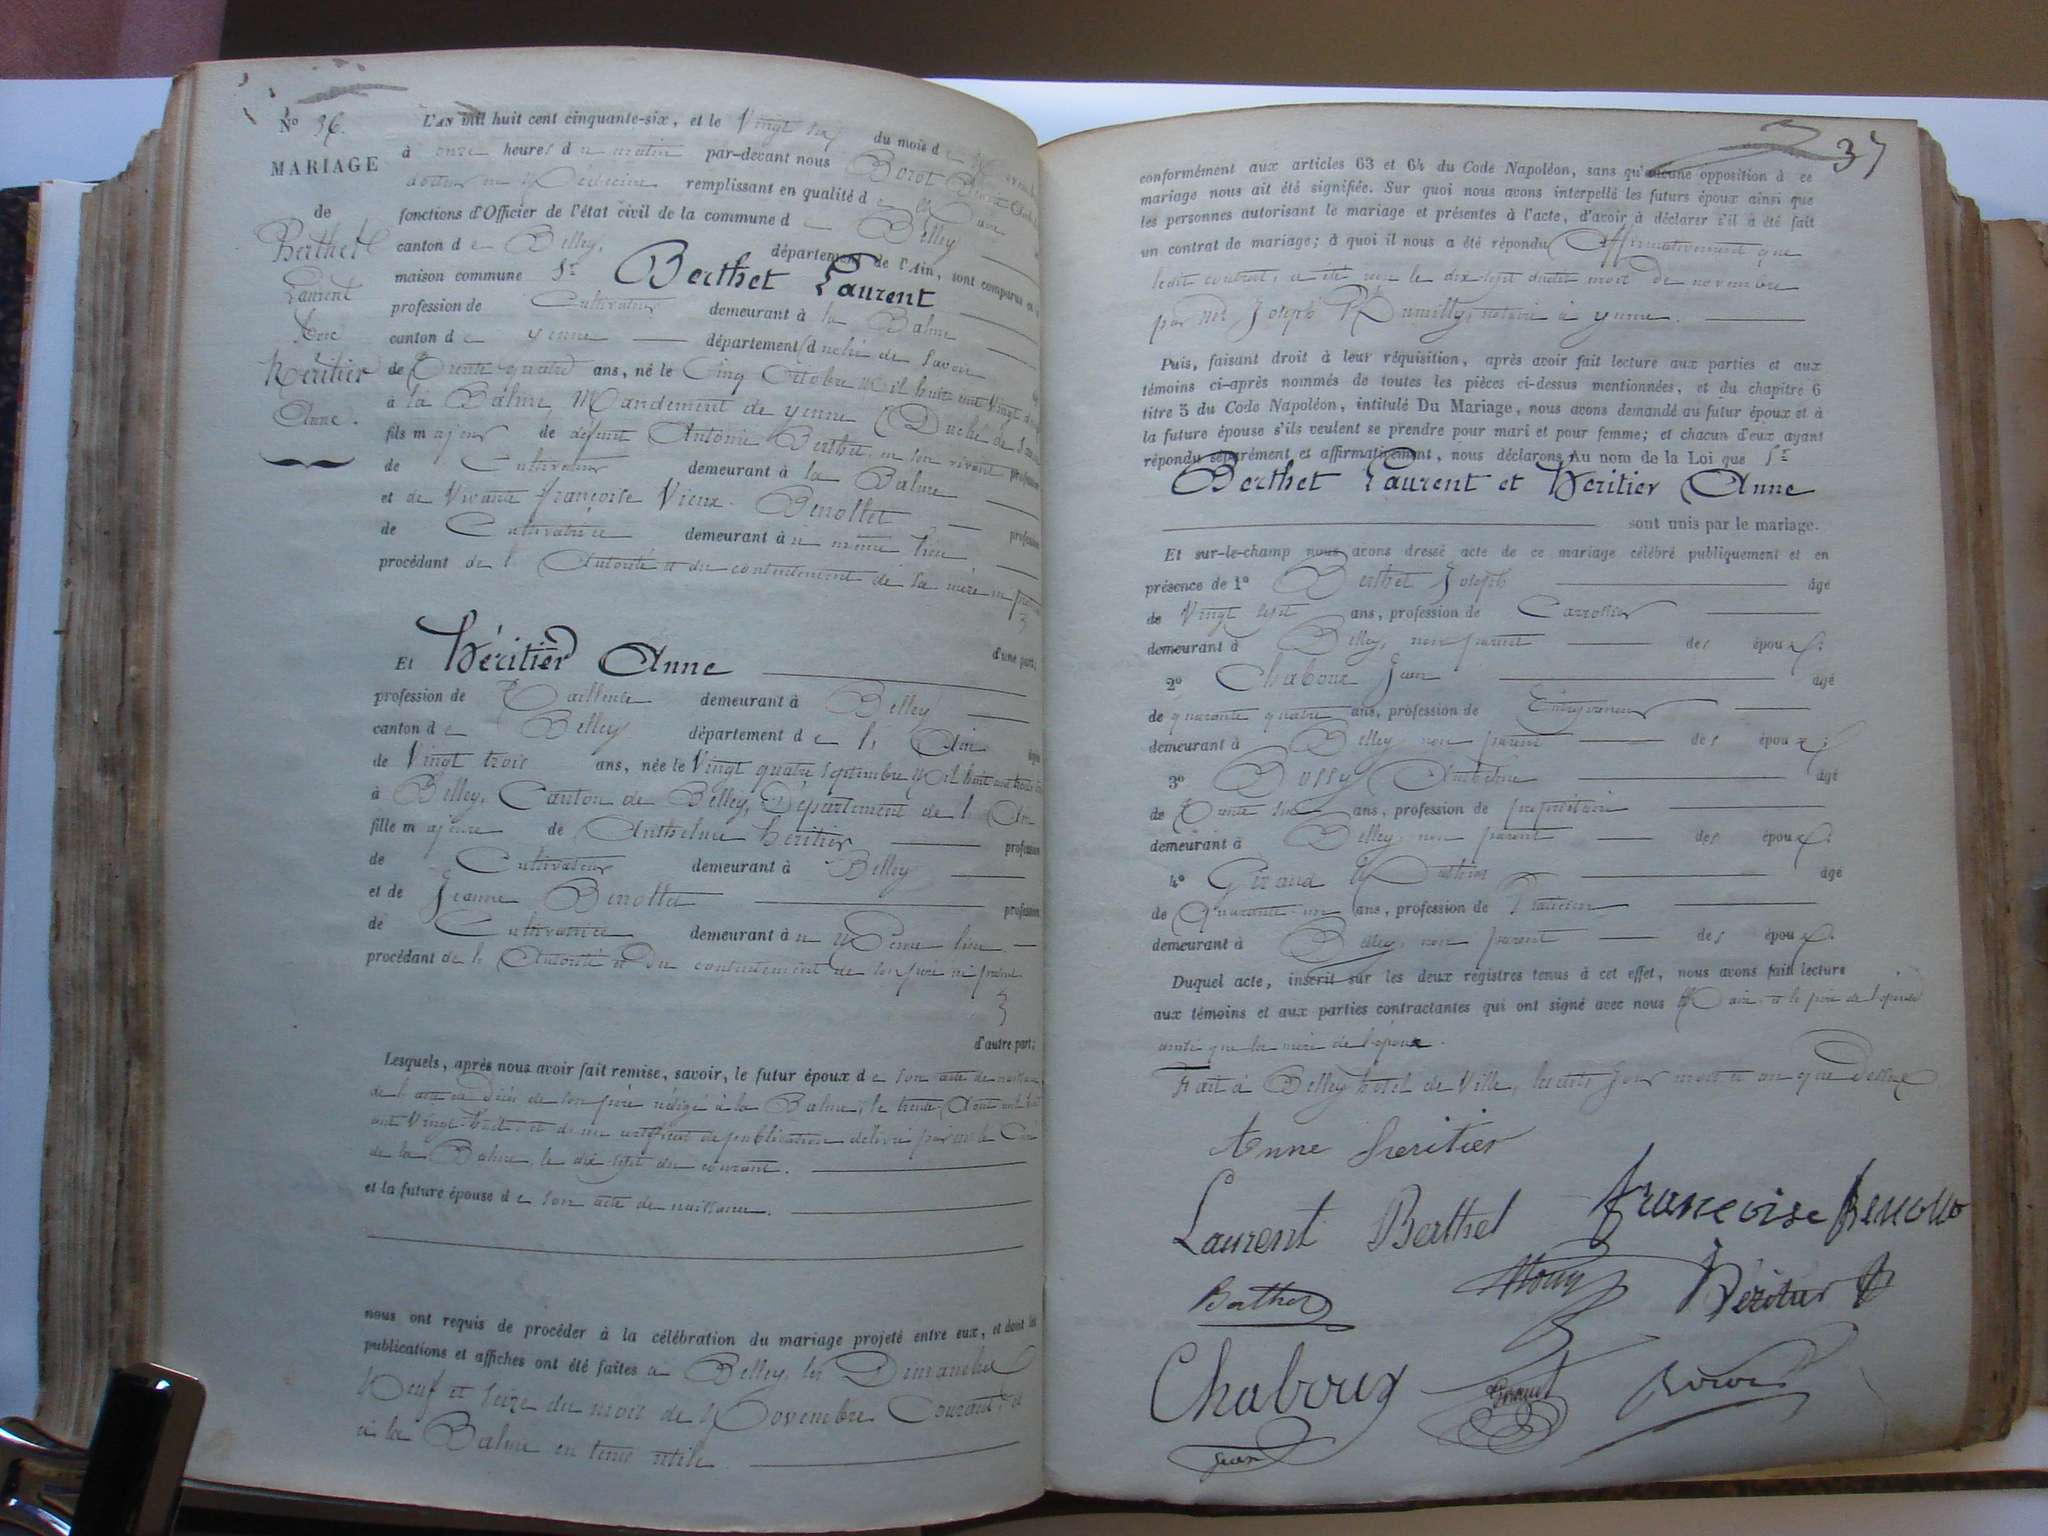 N° 36.
MARIAGE
de
Berthet
Laurent
Avec
Héritier
Anne.
L'AN mil huit cent cinquante-six, et le Vingt six du mois de
à onze heures du matin par-devant nous Borot
docteur en Médecine remplissant en qualité de Maire
fonctions d'Officier de l'état civil de la commune de Belley
canton de Belley, département de l'Ain, sont comparus en la
maison commune Sr Berthet Laurent
profession de Cultivateur demeurant à la Balme
canton de yenne département duché de Savoie
de Trente quatre ans, né le Cinq Octobre Mil huit cent Vingt deux
à la Balme, Mandement de yenne (Duché de Savoie
fils majeur de défunt Antoine Berthet, en son vivant profession
de Cultivateur demeurant à la Balme
et de Vivante françoise Vieux-Benottet profession
de Cultivatrice demeurant à u même lieu
procédant de l'Autorité et du consentement de sa mère ici présente
d'une part;
Et Héritier Anne
profession de Tailleuse demeurant à Belley
canton de Belley département de l'Ain âgée
de Vingt trois ans, née le Vingt quatre Septembre Mil huit cent trente trois
à Belley, Canton de Belley, Département de l'Ain
fille majeure de Anthelme héritier profession
de Cultivateur demeurant à Belley
et de Jeanne Benottet profession
de Cultivatrice demeurant à u Même lieu
procédant de l'Autorité et Du consentement de son père ici présent
d'autre part;
Lesquels, après nous avoir fait remise, savoir, le futur époux de son acte de naissance
de l'acte de décès de son père rédigé à la Balme, le trente Août mil huit
cent Vingt huit, et d'un certificat de publication délivré par mr le Curé
de la Balme, le dix sept du courant.
et la future épouse de son acte de naissance.
nous ont requis de procéder à la célébration du mariage projeté entre eux, et dont les
publications et affiches ont été faites à Belley, les Dimanche
Neuf et Seize du mois de Novembre Courant, et
à la Balme en tems utile.
37
conformément aux articles 63 et 64 du Code Napoléon, sans qu'aucune opposition à ce
mariage nous ait été signifiée. Sur quoi nous avons interpellé les futurs époux ainsi que
les personnes autorisant le mariage et présentes à l'acte, d'avoir à déclarer s'il a été fait
un contrat de mariage; à quoi il nous a été répondu Affirmativement que
ledit contrat, a été reçu le dix sept dudit mois de novembre
par Me Joseph Dumilly, notaire à yenne.
Puis, faisant droit à leur réquisition, après avoir fait lecture aux parties et aux
témoins ci-après nommés de toutes les pièces ci-dessus mentionnées, et du chapitre 6
titre 5 du Code Napoléon, intitulé Du Mariage, nous avons demandé au futur époux et à
la future épouse s'ils veulent se prendre pour mari et pour femme; et chacun d'eux ayant
répondu séparément et affirmativement, nous déclarons Au nom de la Loi que Sr
Berthet Laurent et Héritier Anne
sont unis par le mariage.
Et sur-le-champ nous avons dressé acte de ce mariage célébré publiquement et en
présence de 1° Berthet Joseph âgé
de Vingt sept ans, profession de Carrossier
demeurant à Belley, non parent des époux;
2° Chaboux Jean âgé
de quarante quatre ans, profession de Entrepreneur
demeurant à Belley non parent des époux;
3° Anthelme âgé
de Trente six ans, profession de propriétaire
demeurant à Belley, non parent des époux;
4° Giraud âgé
de Quarante un ans, profession de Praticien
demeurant à Belley, non parent des époux.
Duquel acte, inscrit sur les deux registres tenus à cet effet, nous avons fait lecture
aux témoins et aux parties contractantes qui ont signé avec nous Maire et le père de l'épouse
ainsi que la mère de l'époux.
Fait à Belley hôtel de Ville, lesdits Jour mois et an que dessus
Anne heritier
Laurent Berthet françoise Benotto
Berthet Héritier
Chaboux Giraud Borot
Jean